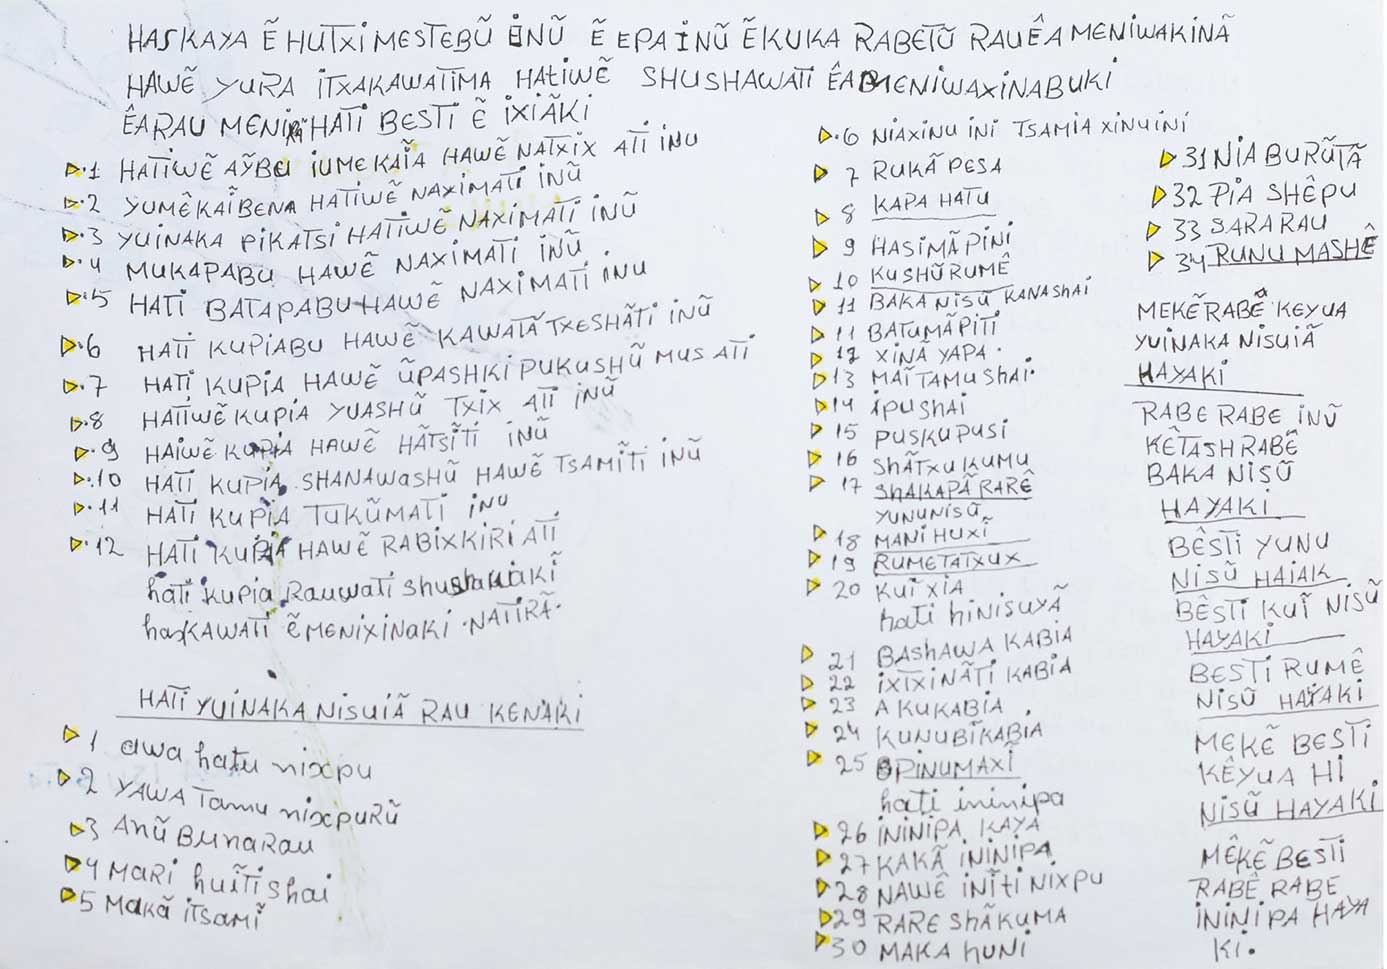 HASKAYA Ẽ HUTXI MESTEBŨ INŨ Ẽ EPA INŨ ẼKUKA RABETŨ RAUÊA MENIWAKINÃ
HAWẼ YURA ITXAKAWATIMA HATIWẼ SHUSHAWATI ÊA MENIWAXINABUKI
ÊARAU MENI HATI BESTI Ẽ IXIÃKI
1 HATIWẼ AỸBU IUMEKAĨA HAWẼ NATXIX ATI INU
2 YUMÊKAĨBENA HATIWẼ NAXIMATI INŨ
3 YUINAKA PIKATSI HATIWẼ NAXIMATI INŨ
4 MUKAPABU HAWẼ NAXIMATI INŨ
5 HATI BATAPABU HAWẼ NAXIMATI INU
6 HATI KUPIABU HAWẼ KAWATÃ TXESHÃTI INŨ
7 HATI KUPIA HAWẼ ŨPASHKI PUKUSHŨ MUS ATI
8 HATIWẼ KUPIA YUASHŨ TXIX ATI INŨ
9 HAIWẼ KUPIA HAWẼ HÃTSĨTI INŨ
10 HATI KUPIA SHANAWASHŨ HAWẼ TSAMĨTI INŨ
11 HATI KUPIA TUKŨMATI INU
12 HATI KUPIA HAWẼ RABIXKIRI ATI
hati kupia Rauwati shushawaki
haskAWATI ẽ MENIXINAKI NATIRÃ
HATI YUINAKA NISUIÃ RAU KENAKI
1 awa hatu nixpu
2 YAWA Tamu nixpuRŨ
3 ANŨ BUNARAU
4 MARI huĩti shai
5 MAKÃ ITSAMĨ
6 NIAXINU INI TSAMIA XINU INI
7 RUKÃ PESA
8 KAPA HATU
9 HASIMÃ PINI
10 KUSHŨ RUMÊ
11 BAKA NISŨ KANASHAI
11 BATUMÃ PITI
12 XINÃ YAPA
13 MAĨ TAMU SHAI
14 IPU SHAI
15 PUSKU PUSI
16 SHÃTXU KUMU
17 SHAKAPÃ RARÊ
YUNU NISŨ
18 MANI HUXĨ
19 RUMETAIXUX
20 KUĨ XIA
hati hinisuyã
21 BASHAWA KABIA
22 IXIXINÃTI KABIA
23 AKUKABIA
24 KUNUBĨKABIA
25 PINUMAXĨ
hati ininipa
26 ININIPA KAYA
27 KAKÃ ININIPA
28 NAWÊ INĨTI NIXPU
29 RARE SHÃKUMA
30 MAKA HUNI
31 NIA BURŨTÃ
32 PIA SHÊPU
33 SARARAU
34 RUNU MASHÊ
MEKẼ RABÊ KEYUA
YUINAKA NISUIÃ
HAYAKI
RABE RABE INŨ
KẼTASH RABẼ
BAKA NISŨ
HAYAKI
BÊSTI YUNU
NISŨ HAIAK
BÊSTI KUĨ NISŨ
HAYAKI
BESTI RUMÊ
NISŨ HAYAKI
MEKẼ BESTI
KÊYUA HI
NISŨ HAYAKI
MÊKẼ BESTI
RABÊ RABE
ININIPA HAYA
KI.